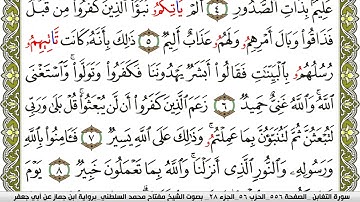 عَلِيمٌۢ بِذَاتِ ٱلصُّدُورِ ٤ أَلَمۡ يَاتِكُمُۥ نَبَؤُاْ ٱلَّذِينَ كَفَرُواْ مِن قَبۡلُ
فَذَاقُواْ وَبَالَ أَمۡرِهِمُۥ وَلَهُمُۥ عَذَابٌ أَلِيمٌ ٥ ذَٰلِكَ بِأَنَّهُۥ كَانَت تَّاتِيهِمُۥ
رُسُلُهُمُۥ بِٱلۡبَيِّنَٰتِ فَقَالُواْ أَبَشَرٌ يَهۡدُونَنَا فَكَفَرُواْ وَتَوَلَّواْ وَّٱسۡتَغۡنَى
ٱللَّهُ وَٱللَّهُ غَنِيٌّ حَمِيدٌ ٦ زَعَمَ ٱلَّذِينَ كَفَرُواْ أَن لَّن يُبۡعَثُواْ قُلۡ بَلَىٰ وَرَبِّي
لَتُبۡعَثُنَّ ثُمَّ لَتُنَبَّؤُنَّ بِمَا عَمِلۡتُمُۥ وَذَٰلِكَ عَلَى ٱللَّهِ يَسِيرٌ ٧ فَـَٔامِنُواْ بِٱللَّهِ
وَرَسُولِهِۦ وَٱلنُّورِ ٱلَّذِي أَنزَلۡنَا وَٱللَّهُ بِمَا تَعۡمَلُونَ خَبِيرٌ ٨ يَوۡمَ
سورة التغابن _ الصفحة ٥٥٦ _ الحزب ٥٦ _ الجزء ٢٨ _ بصوت الشيخ مفتاح محمد السلطني _ برواية ابن جماز عن أبي جعفر